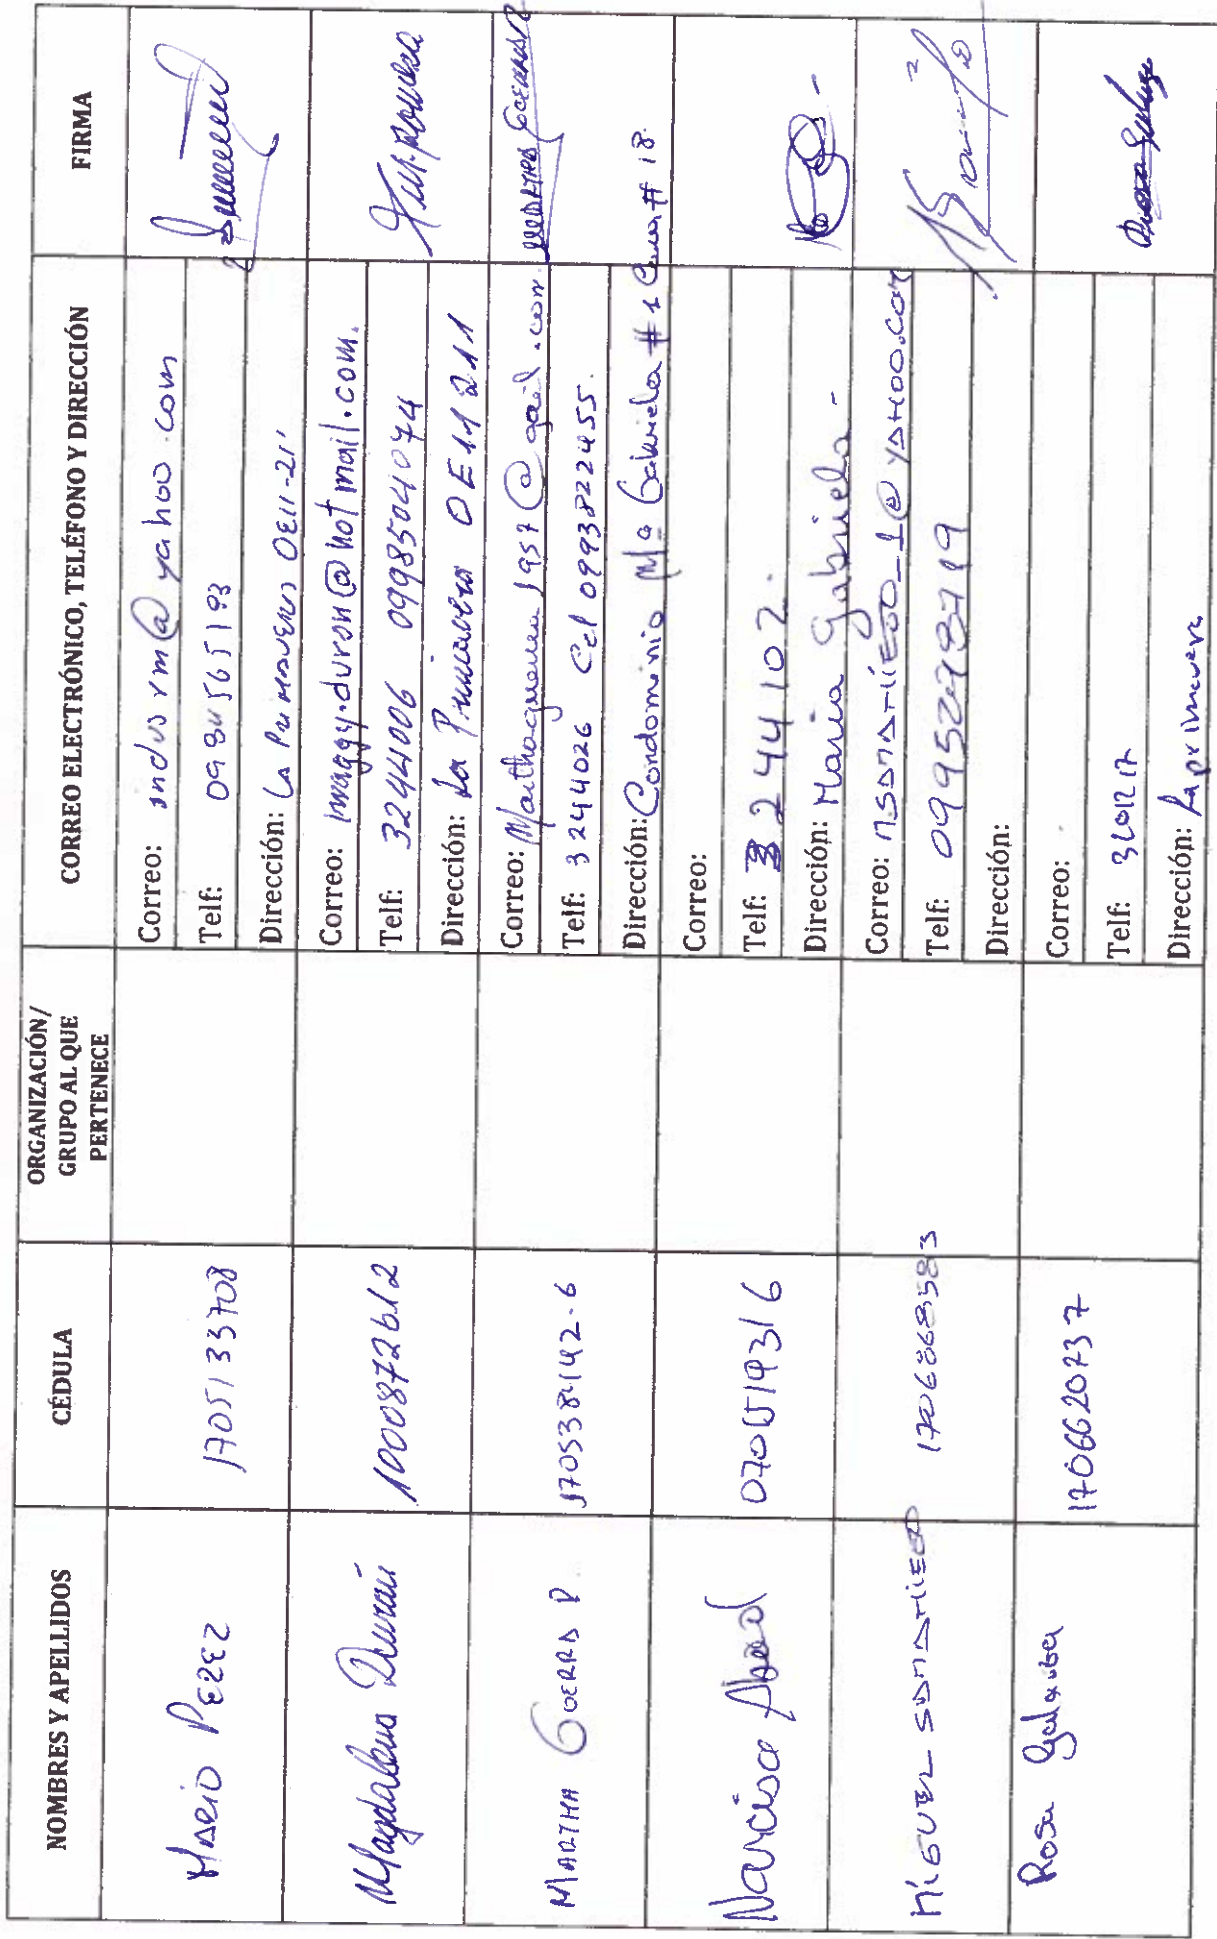 NOMBRES Y APELLIDOS CÉDULA ORGANIZACIÓN/ GRUPO AL QUE PERTENECE CORREO ELECTRÓNICO, TELÉFONO Y DIRECCIÓN FIRMA
MARIO PEREZ 1705133708
Correo: indusrm@yahoo.com
Telf: 0984565193
Dirección: La Primavera OE11-21
Magdalena Durán 1000872612
Correo: maggy.duron@hotmail.com.
Telf: 3244006 0998504074
Dirección: La Primavera OE11211
MARTHA GUERRA P. 170538142-6
Correo:
Telf: 3244026 Cel 0993822455.
Dirección: Condominio Ma Gabriela # 1 Casa # 18.
Narcisa Abad
Correo:
Telf: 3244102.
Dirección: Maria Gabriela -
MIGUEL 1706868583
Correo:
Telf: 0995278719
Dirección:
Rosa 1706620737
Correo:
Telf:
Dirección: La primavera